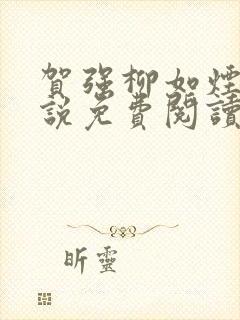 賀強柳如煙
說免費閱讀
昕靈